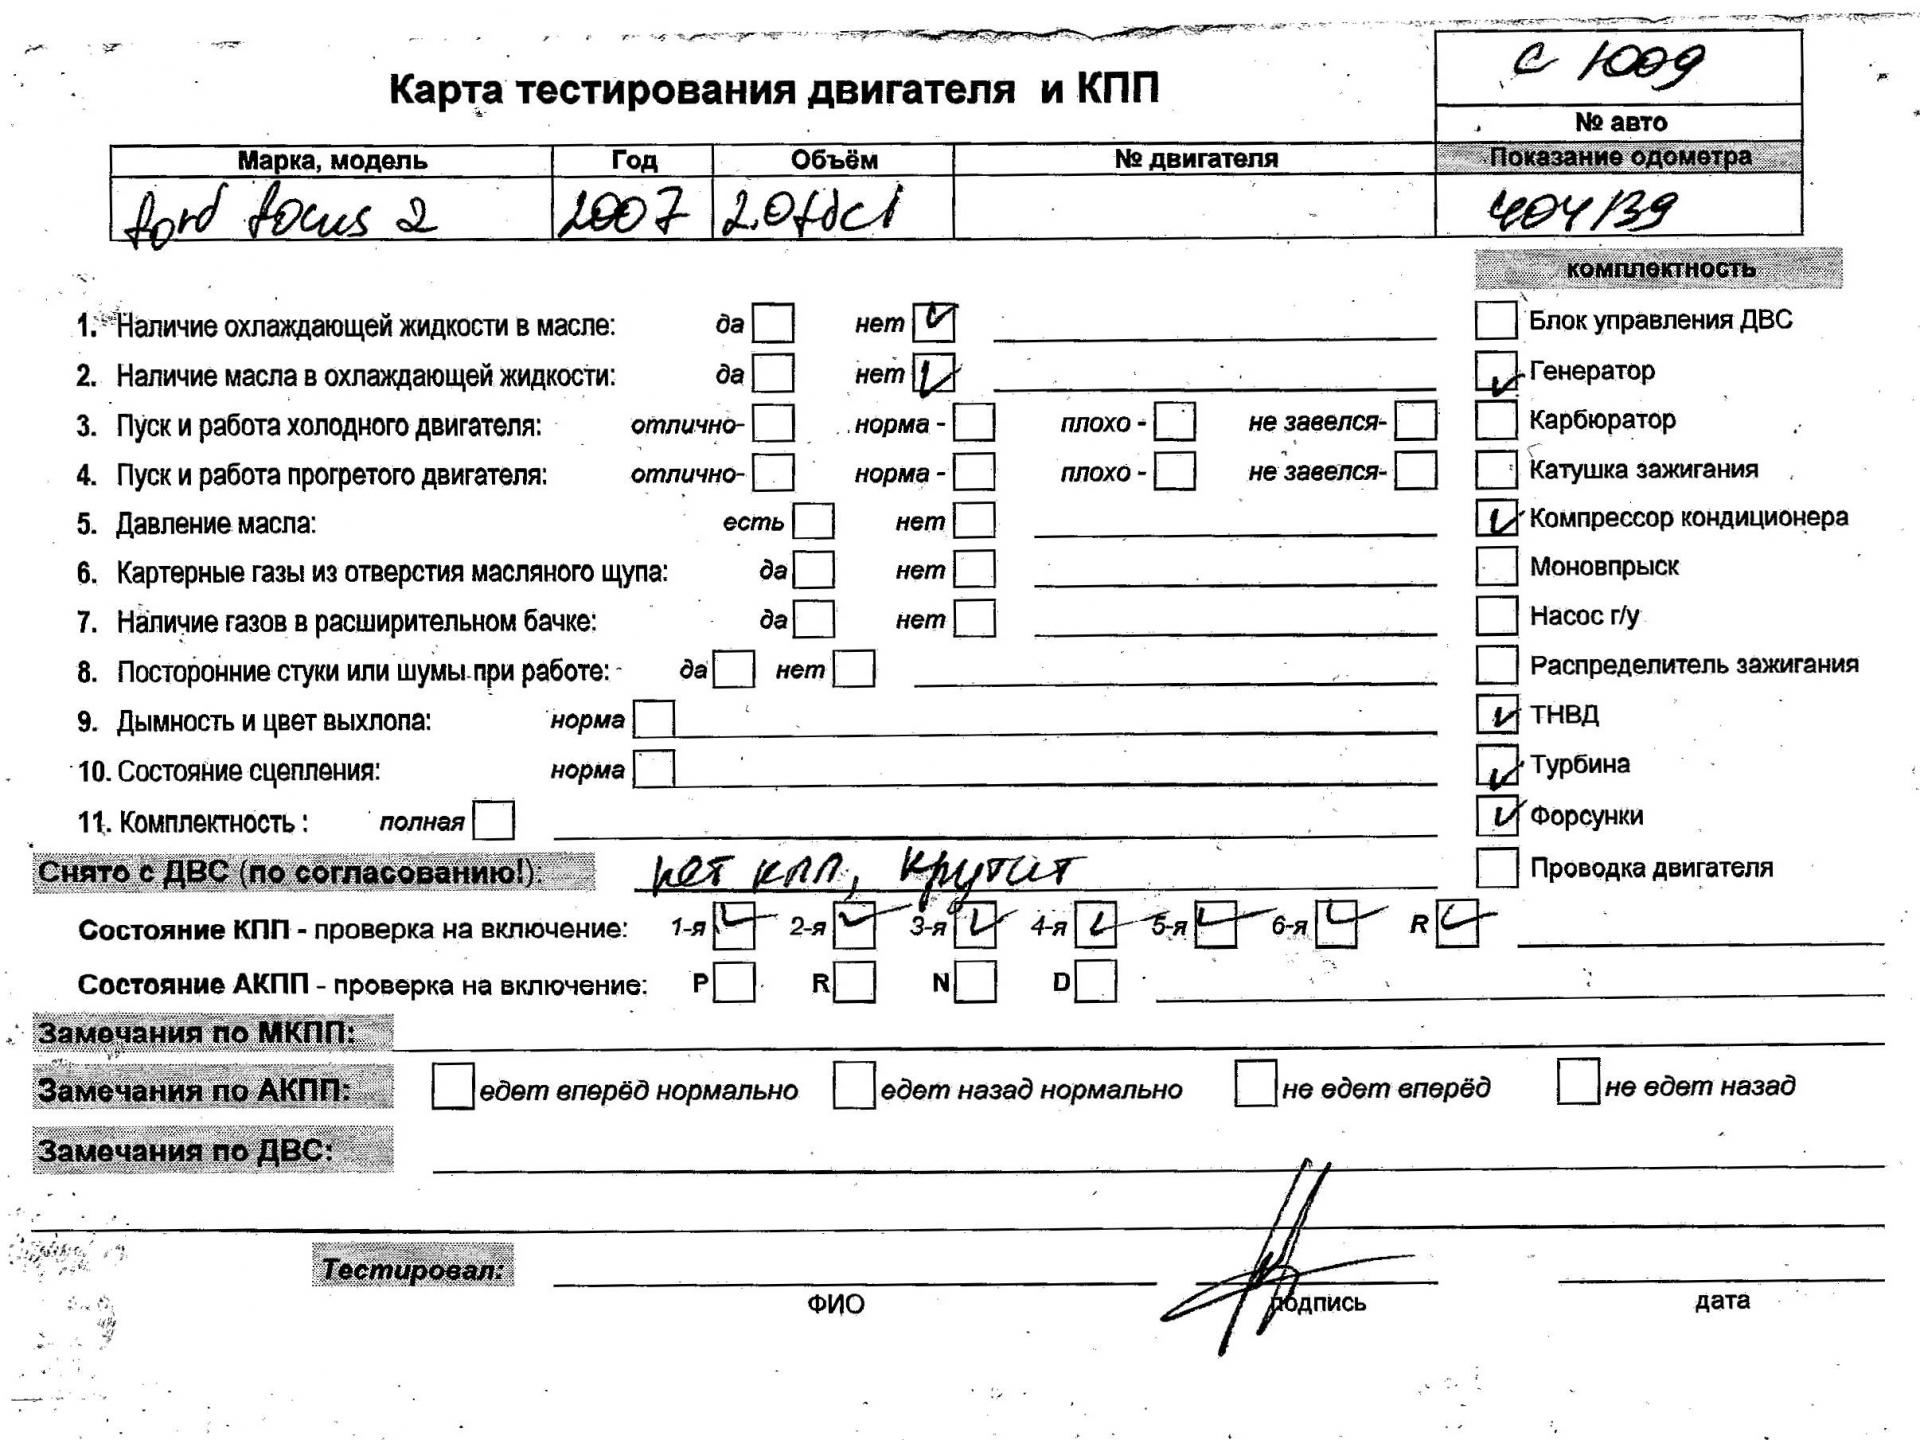 Карта тестирования двигателя и КПП
С 1009
№ авто
Марка, модель Год Объём № двигателя Показание одометра
ford focus 2 2007 2.0tdci 404139
комплектность
1. Наличие охлаждающей жидкости в масле: да нет
Блок управления ДВС
2. Наличие масла в охлаждающей жидкости: да нет
Генератор
3. Пуск и работа холодного двигателя: отлично- норма - плохо - не завелся-
Карбюратор
4. Пуск и работа прогретого двигателя: отлично- норма - плохо - не завелся-
Катушка зажигания
5. Давление масла: есть нет
Компрессор кондиционера
6. Картерные газы из отверстия масляного щупа: да нет
Моновпрыск
7. Наличие газов в расширительном бачке: да нет
Насос г/у
8. Посторонние стуки или шумы при работе: да нет
Распределитель зажигания
9. Дымность и цвет выхлопа: норма
ТНВД
10. Состояние сцепления: норма
Турбина
11. Комплектность : полная
Форсунки
Снято с ДВС (по согласованию!): нет кпп, крутит
Проводка двигателя
Состояние КПП - проверка на включение: 1-я 2-я 3-я 4-я 5-я 6-я R
Состояние АКПП - проверка на включение: P R N D
Замечания по МКПП:
Замечания по АКПП: едет вперёд нормально едет назад нормально не едет вперёд не едет назад
Замечания по ДВС:
Тестировал:
ФИО подпись дата